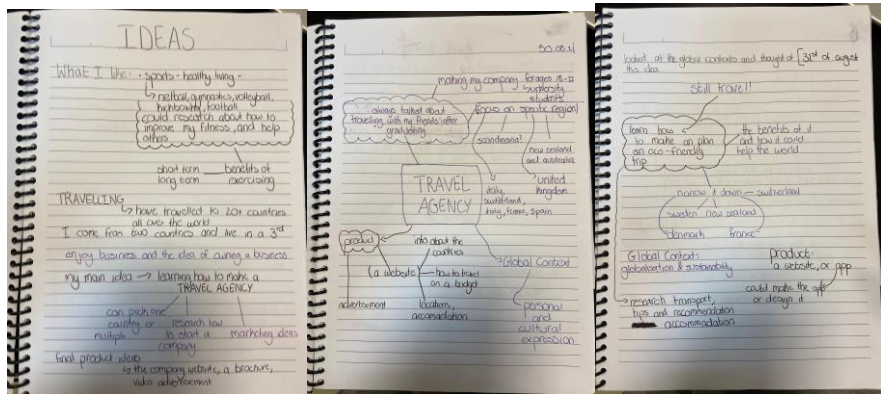 IDEAS
What I like: · sports - healthy living -
netball, gymnastics, volleyball,
kickboxing, football
could research about how to
improve my fitness, and help
others
short term benefits of
long term exercising
TRAVELLING
have travelled to 20+ countries
all over the world
I come from two countries and live in a 3rd
enjoy business and the idea of owning a business
my main idea → learning how to make a
TRAVEL AGENCY
can pick one research how marketing ideas
country or to start a
multiple company
final product ideas
the company website, a brochure,
video advertisement
30.08.21
making my company for ages 18-22
students
always talked about
travelling with my friends after
graduating
focus on specific region
scandinavia?
new zealand
and australia
italy,
switzerland,
italy, france, spain
united
kingdom
TRAVEL
AGENCY
product
info about the
countries
(a website
how to travel
on a budget
advertisement
locations,
accomadation
Global Context
personal
and
cultural
expression
looked at the global contexts and thought of
this idea
[31st of august
still travel!
learn how
to make an plan
an eco-friendly
trip
the benefits of it
and how it could
help the world
narrow it down - switzerland
sweden new zealand
denmark france
Global Context:
globalisation & sustainability
product:
a website, or app
could make the app
or design it
research transport,
tips and recommendation
accommodation